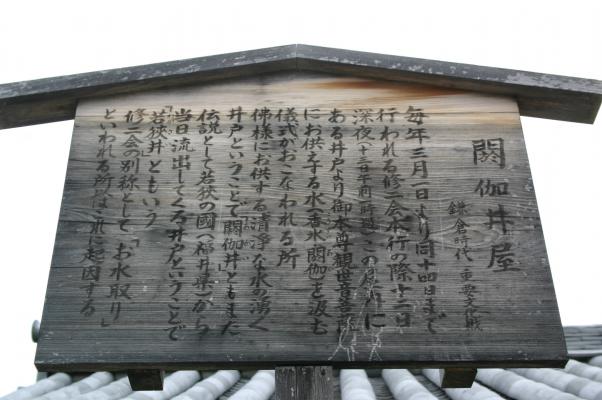 閼伽井屋
鎌倉時代 重要文化財
毎年三月一日より同十四日まで
行われる修二会本行の際十二日
深夜（十三日午前一時過）この屋内に
ある井戸より御本尊観世音菩薩
にお供えする水（香水 閼伽）を汲む
儀式がおこなわれる所
佛様にお供する清浄な水の湧く
井戸ということで「閼伽井」ともまた
伝説として若狭の國（福井県）から
当日流出してくる井戸ということで
「若狭井」ともいう
修二会の別称として「お水取り」
といわれる所はこれに起因する